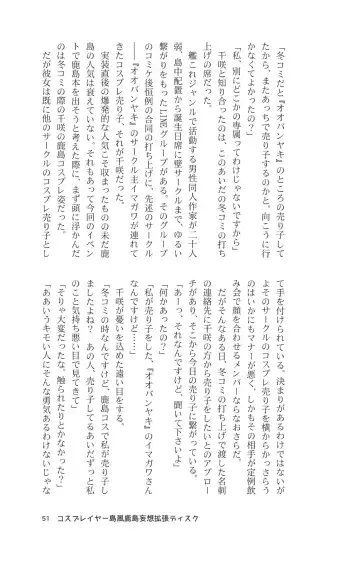 「冬コミだと『オオバンヤキ』のところの売り子して
たから、またあっちで売り子するのかと。向こうに行
かなくてよかったの？」
「私、別にどこかの専属ってわけじゃないですから」
千咲と知り合ったのは、このあいだの冬コミの打ち
上げの席だった。
艦これジャンルで活動する男性同人作家が二十人
弱、島中配置から誕生日席に壁サークルまで、ゆるい
繋がりをもったLINEグループがある。そのグループ
のコミケ後恒例の合同の打ち上げに、先述のサークル
――『オオバンヤキ』のサークル主イマガワが連れて
きたコスプレ売り子、それが千咲だった。
実装直後の爆発的な人気こそ収まったものの未だ鹿
島の人気は衰えていない、それもあって今回のイベン
トで鹿島本を出そうと考えた際に、まず頭に浮かんだ
のは冬コミの際の千咲の鹿島コスプレ姿だった。
だが彼女は既に他のサークルのコスプレ売り子とし
て手を付けられている。決まりがあるわけではないが
よそのサークルのコスプレ売り子を横からかっさらう
のはいかにもマナーが悪く、しかもその相手が定例飲
み会で顔を合わせるメンバーならなおさらだ。
だがそんなある日、冬コミの打ち上げで渡した名刺
の連絡先に千咲の方から売り子をしたいとのアプロー
チがあり、そこから今日の売り子に繋がっている。
「あーっ、それなんですけど、聞いて下さいよ」
「何かあったの？」
「私が売り子をした、『オオバンヤキ』のイマガワさん
なんですけど……」
千咲が憂いを込めた遠い目をする。
「冬コミの時なんですけど、鹿島コスで私が売り子し
ましたよね？　あの人、売り子してるあいだずっと私
のこと気持ち悪い目で見てきて」
「そりゃ大変だったな。触られたりとかなかった？」
「ああいうキモい人にそんな勇気あるわけないじゃな
51　コスプレイヤー島風鹿島妄想拡張ディスク